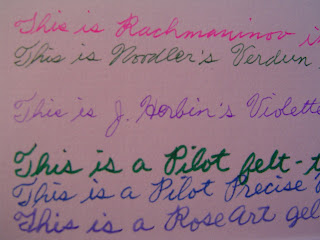 This is Rachmaninov
This is Noodler's Verdun
This is J. Herbin's Violette
This is a Pilot felt-t
This is a Pilot Precise
This is a RoseArt gel